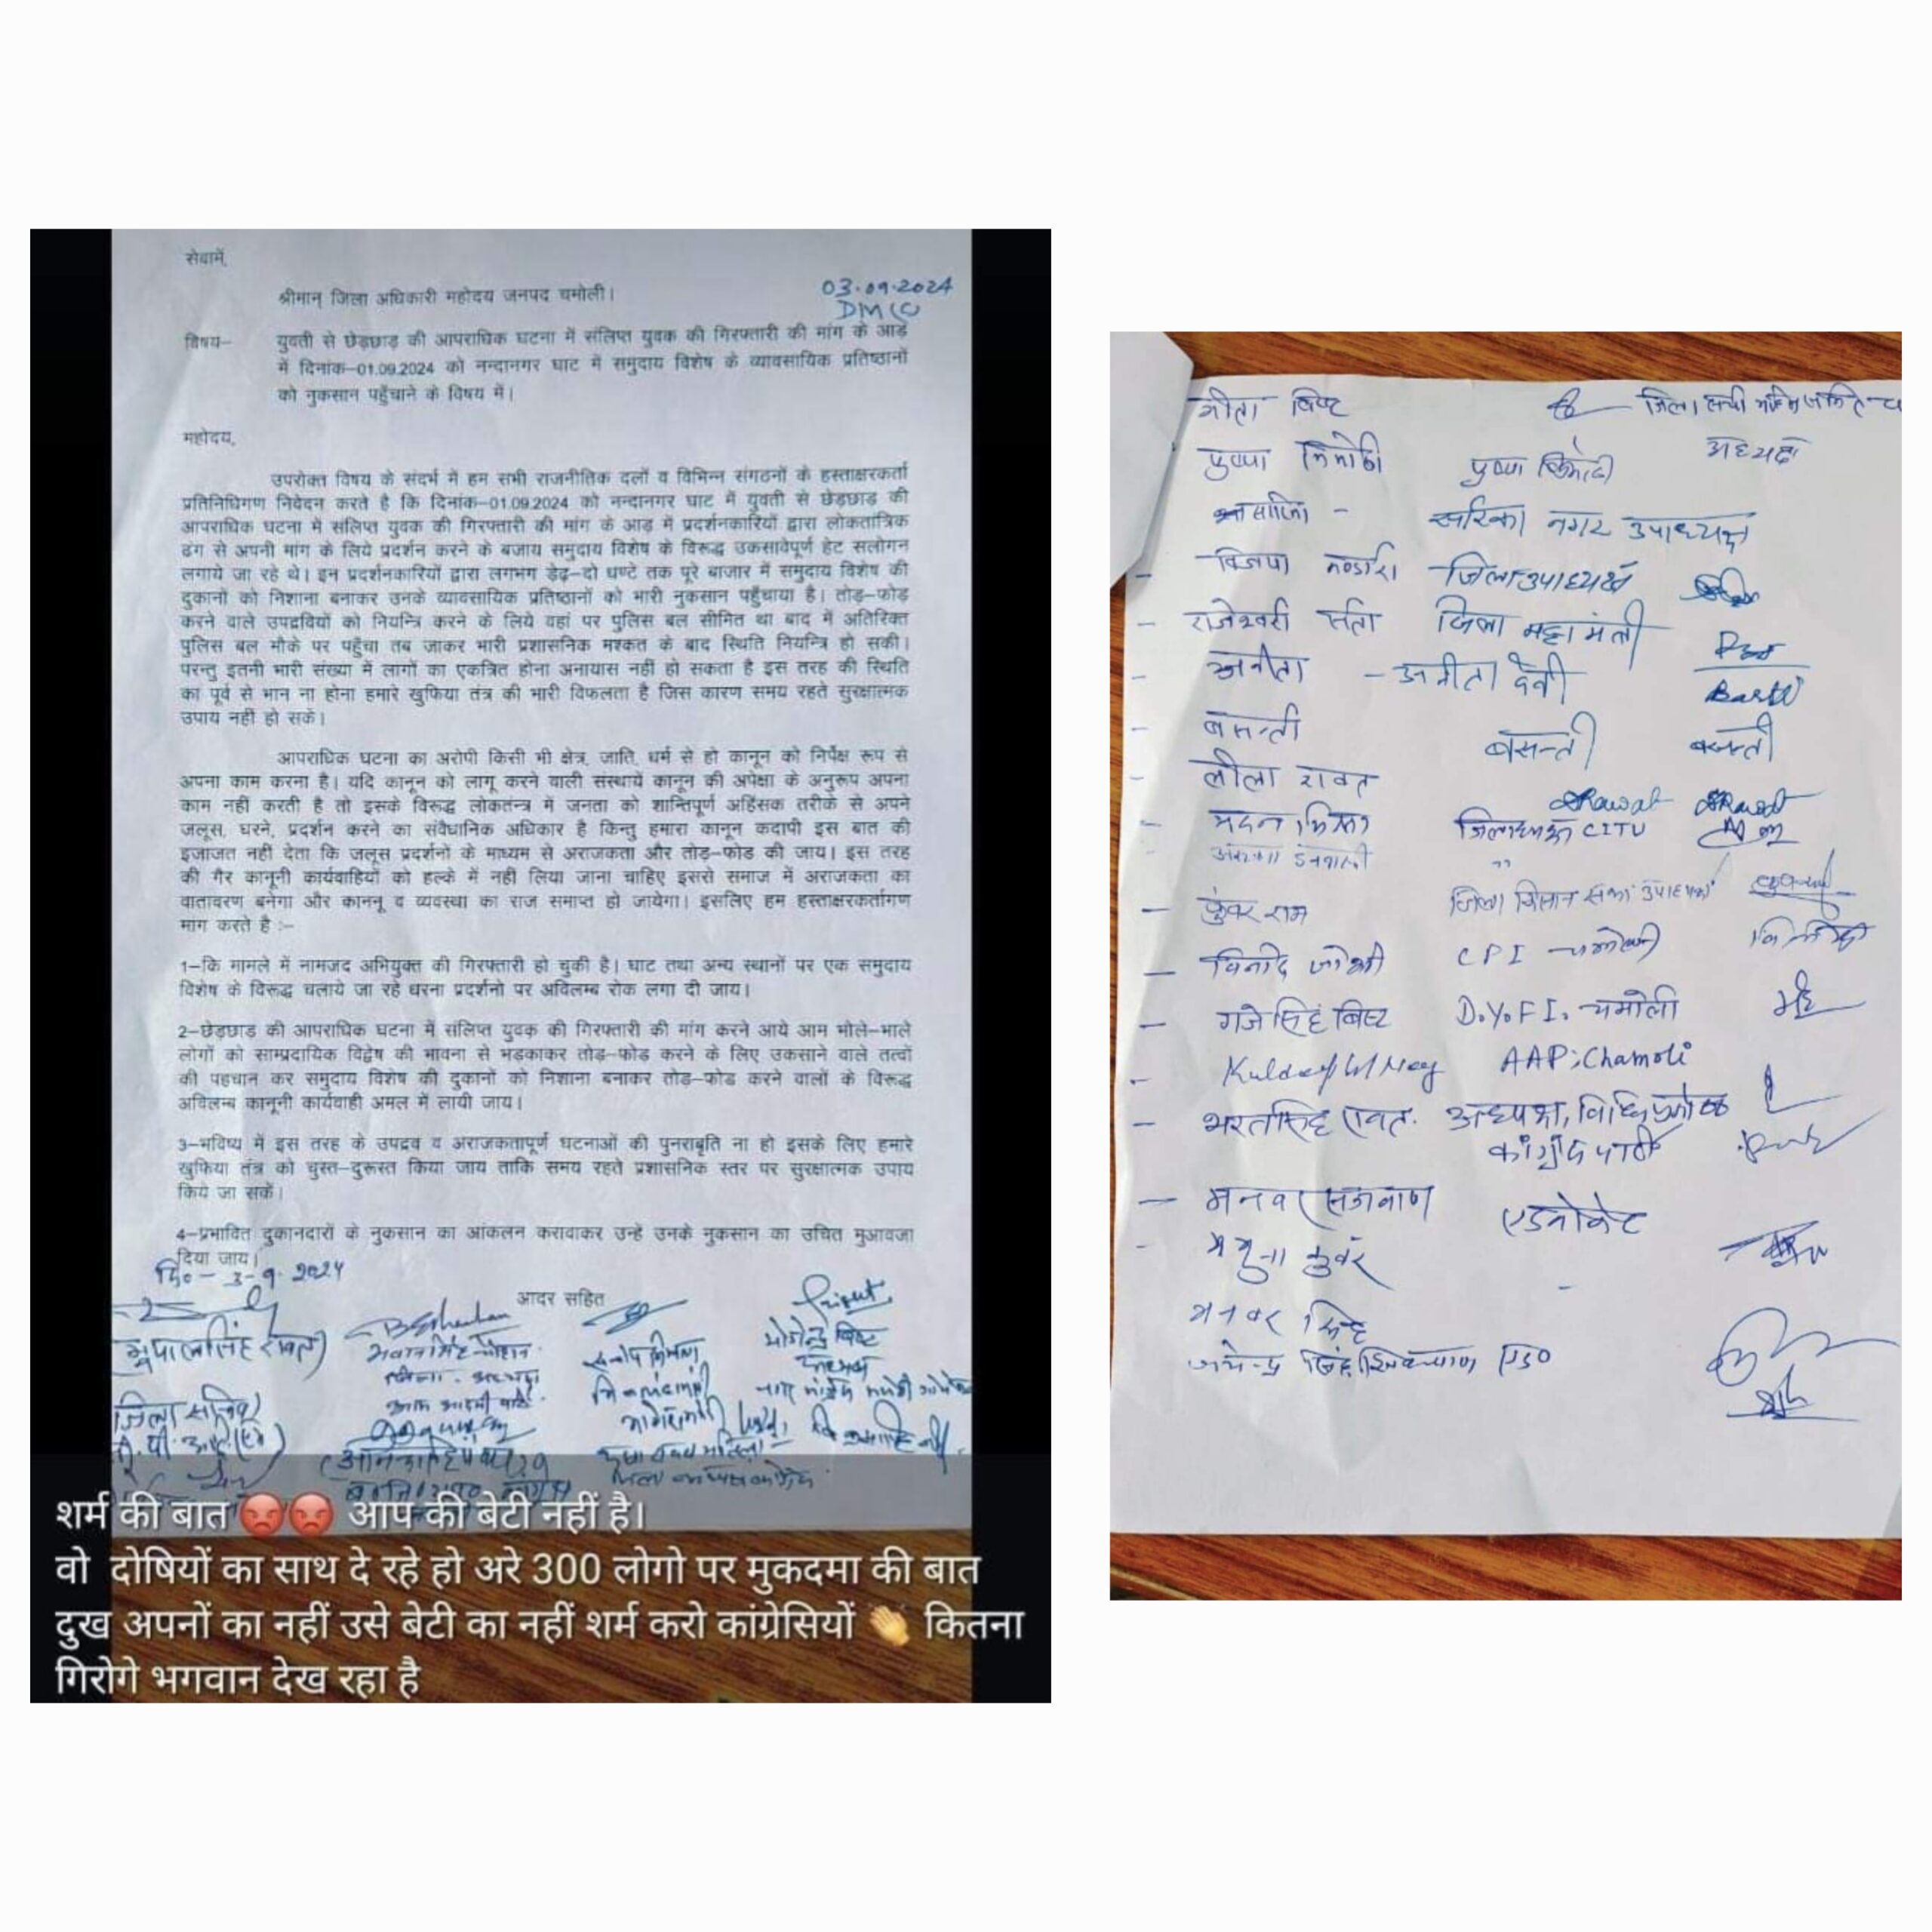 सेवामें,
श्रीमान् जिला अधिकारी महोदय जनपद चमोली।
03.09.2024
DM(C
विषय– युवती से छेड़छाड़ की आपराधिक घटना में संलिप्त युवक की गिरफ्तारी की मांग के आड़
में दिनांक–01.09.2024 को नन्दानगर घाट में समुदाय विशेष के व्यावसायिक प्रतिष्ठानों
को नुकसान पहुँचाने के विषय में।
महोदय,
उपरोक्त विषय के संदर्भ में हम सभी राजनीतिक दलों व विभिन्न संगठनों के हस्ताक्षरकर्ता
प्रतिनिधिगण निवेदन करते है कि दिनांक–01.09.2024 को नन्दानगर घाट में युवती से छेड़छाड़ की
आपराधिक घटना में संलिप्त युवक की गिरफ्तारी की मांग के आड़ में प्रदर्शनकारियों द्वारा लोकतात्रिक
ढंग से अपनी मांग के लिये प्रदर्शन करने के बजाय समुदाय विशेष के विरूद्ध उकसावेपूर्ण हेट सलोगन
लगाये जा रहे थे। इन प्रदर्शनकारियों द्वारा लगभग डेढ़–दो घण्टे तक पूरे बाजार में समुदाय विशेष की
दुकानों को निशाना बनाकर उनके व्यावसायिक प्रतिष्ठानों को भारी नुकसान पहुँचाया है। तोड़–फोड़
करने वाले उपद्रवियों को नियन्त्रि करने के लिये वहां पर पुलिस बल सीमित था बाद में अतिरिक्त
पुलिस बल मौके पर पहुँचा तब जाकर भारी प्रशासनिक मश्कत के बाद स्थिति नियन्त्रि हो सकी।
परन्तु इतनी भारी संख्या में लागों का एकत्रित होना अनायास नहीं हो सकता है इस तरह की स्थिति
का पूर्व से भान ना होना हमारे खुफिया तंत्र की भारी विफलता है जिस कारण समय रहते सुरक्षात्मक
उपाय नहीं हो सकें।
आपराधिक घटना का अरोपी किसी भी क्षेत्र, जाति, धर्म से हो कानून को निर्पेक्ष रूप से
अपना काम करना है। यदि कानून को लागू करने वाली संस्थायें कानून की अपेक्षा के अनुरूप अपना
काम नहीं करती है तो इसके विरूद्ध लोकतंन्त्र में जनता को शान्तिपूर्ण अहिंसक तरीके से अपने
जलूस, धरने, प्रदर्शन करने का संवैधानिक अधिकार है किन्तु हमारा कानून कदापी इस बात की
इजाजत नहीं देता कि जलूस प्रदर्शनों के माध्यम से अराजकता और तोड़–फोड की जाय। इस तरह
की गैर कानूनी कार्यवाहियों को हल्के में नहीं लिया जाना चाहिए इससे समाज में अराजकता का
वातावरण बनेगा और काननू व व्यवस्था का राज समाप्त हो जायेगा। इसलिए हम हस्ताक्षरकर्तागण
माग करते है :–
1–कि मामले में नामजद अभियुक्त की गिरफ्तारी हो चुकी है। घाट तथा अन्य स्थानों पर एक समुदाय
विशेष के विरूद्ध चलाये जा रहे धरना प्रदर्शनो पर अविलम्ब रोक लगा दी जाय।
2–छेड़छाड की आपराधिक घटना में संलिप्त युवक की गिरफ्तारी की मांग करने आये आम भोले–भाले
लोगों को साम्प्रदायिक विद्वेष की भावना से भड़काकर तोड़–फोड करने के लिए उकसाने वाले तत्वों
की पहचान कर समुदाय विशेष की दुकानों को निशाना बनाकर तोड–फोड करने वालों के विरूद्ध
अविलन्ब कानूनी कार्यवाही अमल में लायी जाय।
3–भविष्य में इस तरह के उपद्रव व अराजकतापूर्ण घटनाओं की पुनराबृति ना हो इसके लिए हमारे
खुफिया तंत्र को चुस्त–दुरूस्त किया जाय ताकि समय रहते प्रशासनिक स्तर पर सुरक्षात्मक उपाय
किये जा सकें।
4–प्रभावित दुकानदारों के नुकसान का आंकलन करावाकर उन्हें उनके नुकसान का उचित मुआवजा
दिया जाय।
दि० – 3-9-2024
आदर सहित
भूपाल सिंह रावत)
जिला सचिव
योगेन्द्र बिष्ट
अध्यक्ष
शर्म की बात 😡😡 आप की बेटी नहीं है।
वो दोषियों का साथ दे रहे हो अरे 300 लोगो पर मुकदमा की बात
दुख अपनों का नहीं उसे बेटी का नहीं शर्म करो कांग्रेसियों 👏 कितना
गिरोगे भगवान देख रहा है
गीता बिष्ट
अध्यक्ष
सरिका नगर उपाध्यक्ष
जिला उपाध्यक्ष
राजेश्वरी जिला महामंत्री
अनीता – अनीता देवी
बसन्ती बसन्ती बसन्ती
लीला रावत
CITU
कुंवर राम जिला किसान सभा उपाध्यक्ष
– विनोद जोशी CPI – चमोली
– गजेसिंह बिष्ट D.Y.F.I. चमोली
AAP, Chamoli
– भरतसिंह रावत. अध्यक्ष, विधि प्रकोष्ठ
कांग्रेस पार्टी
एडवोकेट
मनवर सिंह